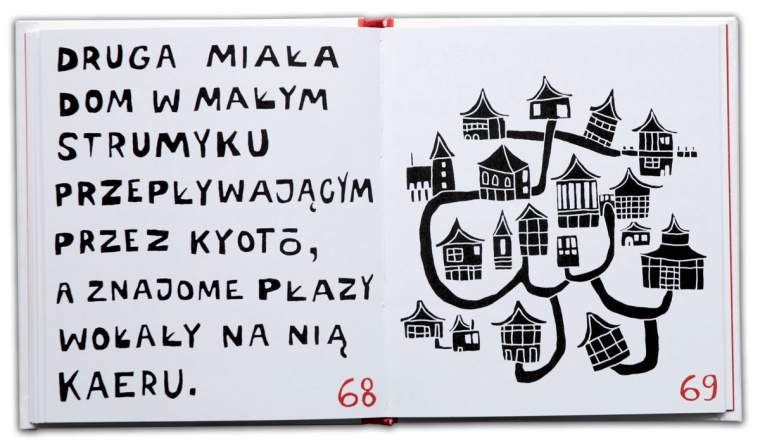 DRUGA MIAŁA
DOM W MAŁYM
STRUMYKU
PRZEPŁYWAJĄCYM
PRZEZ KYOTŌ,
A ZNAJOME PŁAZY
WOŁAŁY NA NIĄ
KAERU.
68
69